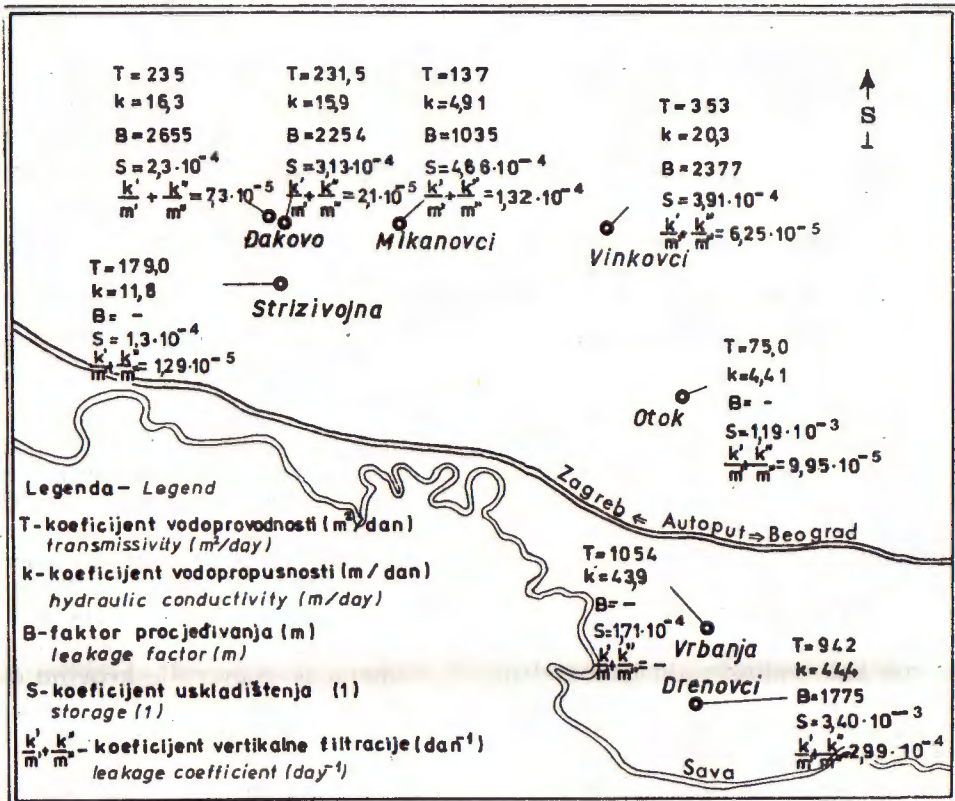 T=235
k=16,3
B=2655
S=2,3·10⁻⁴
k'/m' + k"/m" =7,3·10⁻⁵
T=231,5
k=15,9
B=2254
S=3,13·10⁻⁴
k'/m' + k"/m" =2,1·10⁻⁵
T=137
k=4,91
B=1035
S=4,66·10⁻⁴
k'/m' + k"/m" =1,32·10⁻⁴
T=353
k=20,3
B=2377
S=3,91·10⁻⁴
k'/m' + k"/m" =6,25·10⁻⁵
S
Đakovo
Mikanovci
Vinkovci
T=179,0
k=11,8
B= -
S= 1,3·10⁻⁴
k'/m' + k"/m" =1,29·10⁻⁵
Strizivojna
T=75,0
k=4,41
B= -
S=1,19·10⁻³
k'/m' + k"/m" =9,95·10⁻⁵
Otok
Zagreb ⇐ Autoput ⇒ Beograd
T=1054
k=43,9
B= -
S=1,71·10⁻⁴
k'/m' + k"/m" = -
Vrbanja
T=942
k=44,4
B=1775
S=3,40·10⁻³
k'/m' + k"/m" =2,99·10⁻⁴
Drenovci
Sava
Legenda - Legend
T-koeficijent vodoprovodnosti (m²/dan)
transmissivity (m²/day)
k-koeficijent vodopropusnosti (m/dan)
hydraulic conductivity (m/day)
B-faktor procjeđivanja (m)
leakage factor (m)
S-koeficijent uskladištenja (1)
storage (1)
k'/m' + k"/m" - koeficijent vertikalne filtracije (dan⁻¹)
leakage coefficient (day⁻¹)